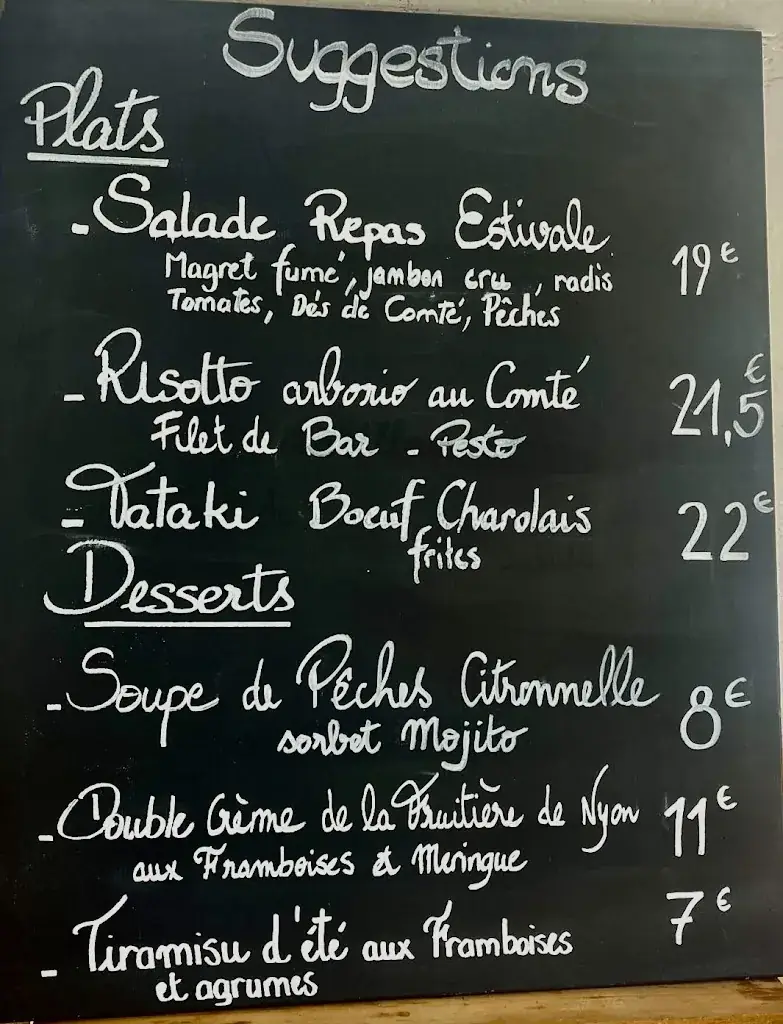 Suggestions
Plats
- Salade Repas Estivale 19€
Magret fumé, jambon cru, radis
Tomates, Dés de Comté, Pêches
- Risotto arborio au Comté 21,5€
Filet de Bar - Pesto
- Tataki Boeuf Charolais 22€
frites
Desserts
- Soupe de Pêches Citronnelle 8€
sorbet Mojito
- Double Crème de la Fruitière de Nyon 11€
aux Framboises et Meringue
- Tiramisu d'été aux Framboises 7€
et agrumes